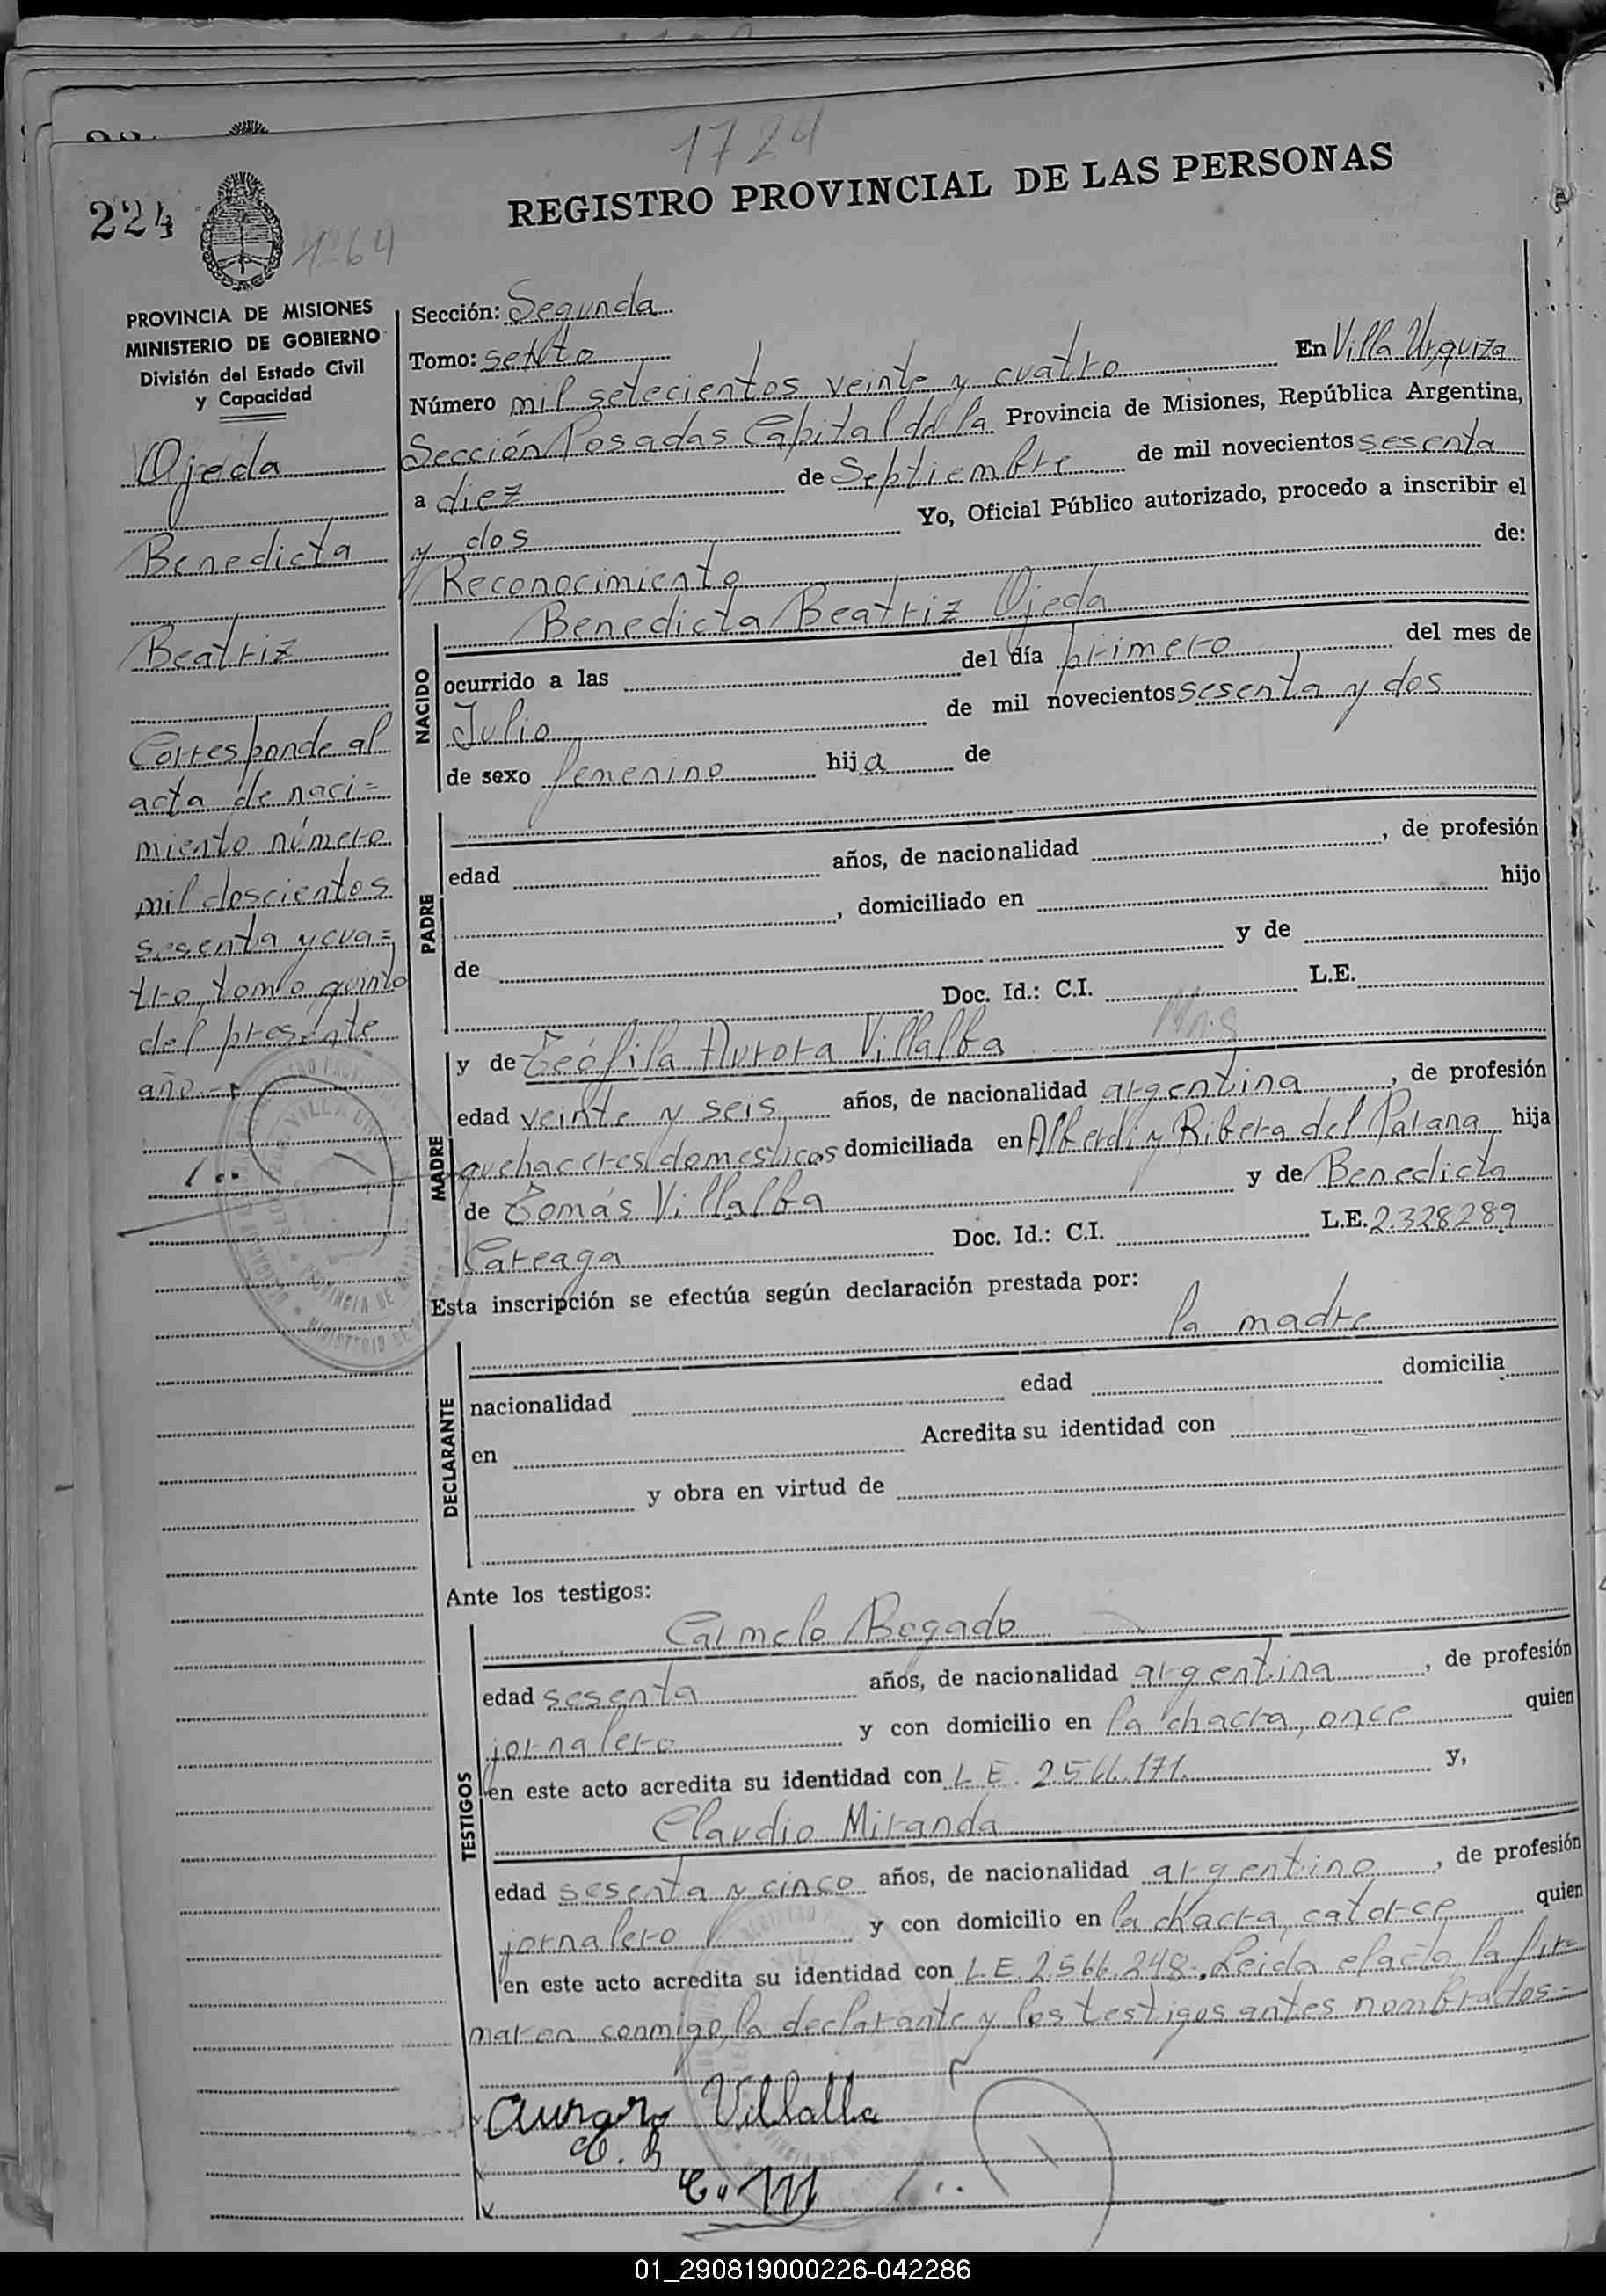 1724
REGISTRO PROVINCIAL DE LAS PERSONAS
224
1264
PROVINCIA DE MISIONES
MINISTERIO DE GOBIERNO
División del Estado Civil
y Capacidad
Ojeda
Benedicta
Beatriz
Corresponde al
acta de naci=
miento número
mil doscientos
sesenta y cua=
tro, tomo quinto
del presente
año.-
Sección: Segunda
Tomo: sexto
Número mil setecientos veinte y cuatro En Villa Urquiza
Sección Posadas Capital de la Provincia de Misiones, República Argentina,
a diez de Septiembre de mil novecientos sesenta
y dos Yo, Oficial Público autorizado, procedo a inscribir el
Reconocimiento de:
NACIDO
Benedicta Beatriz Ojeda
ocurrido a las del día primero del mes de
Julio de mil novecientos sesenta y dos
de sexo femenino hija de
PADRE
edad años, de nacionalidad , de profesión
, domiciliado en hijo
de y de
Doc. Id.: C.I. L.E.
MADRE
y de Teófila Aurora Villalba
edad veinte y seis años, de nacionalidad argentina, de profesión
quehaceres domesticos domiciliada en Alberdi y Ribera del Parana, hija
de Tomás Villalba y de Benedicta
Careaga Doc. Id.: C.I. L.E. 2.328289
Esta inscripción se efectúa según declaración prestada por:
DECLARANTE
la madre
nacionalidad edad domicilia
en Acredita su identidad con
y obra en virtud de
Ante los testigos:
TESTIGOS
Carmelo Bogado
edad sesenta años, de nacionalidad argentina, de profesión
jornalero y con domicilio en la chacra, once quien
en este acto acredita su identidad con L E. 2566.171. y,
Claudio Miranda
edad sesenta y cinco años, de nacionalidad argentino, de profesión
jornalero y con domicilio en la chacra, catorce quien
en este acto acredita su identidad con L.E. 2.566.248.- Leida el acta la fir=
maron conmigo, la declarante y los testigos antes nombrados.-
Aurora Villalba
C. B
C. M
01_290819000226-042286